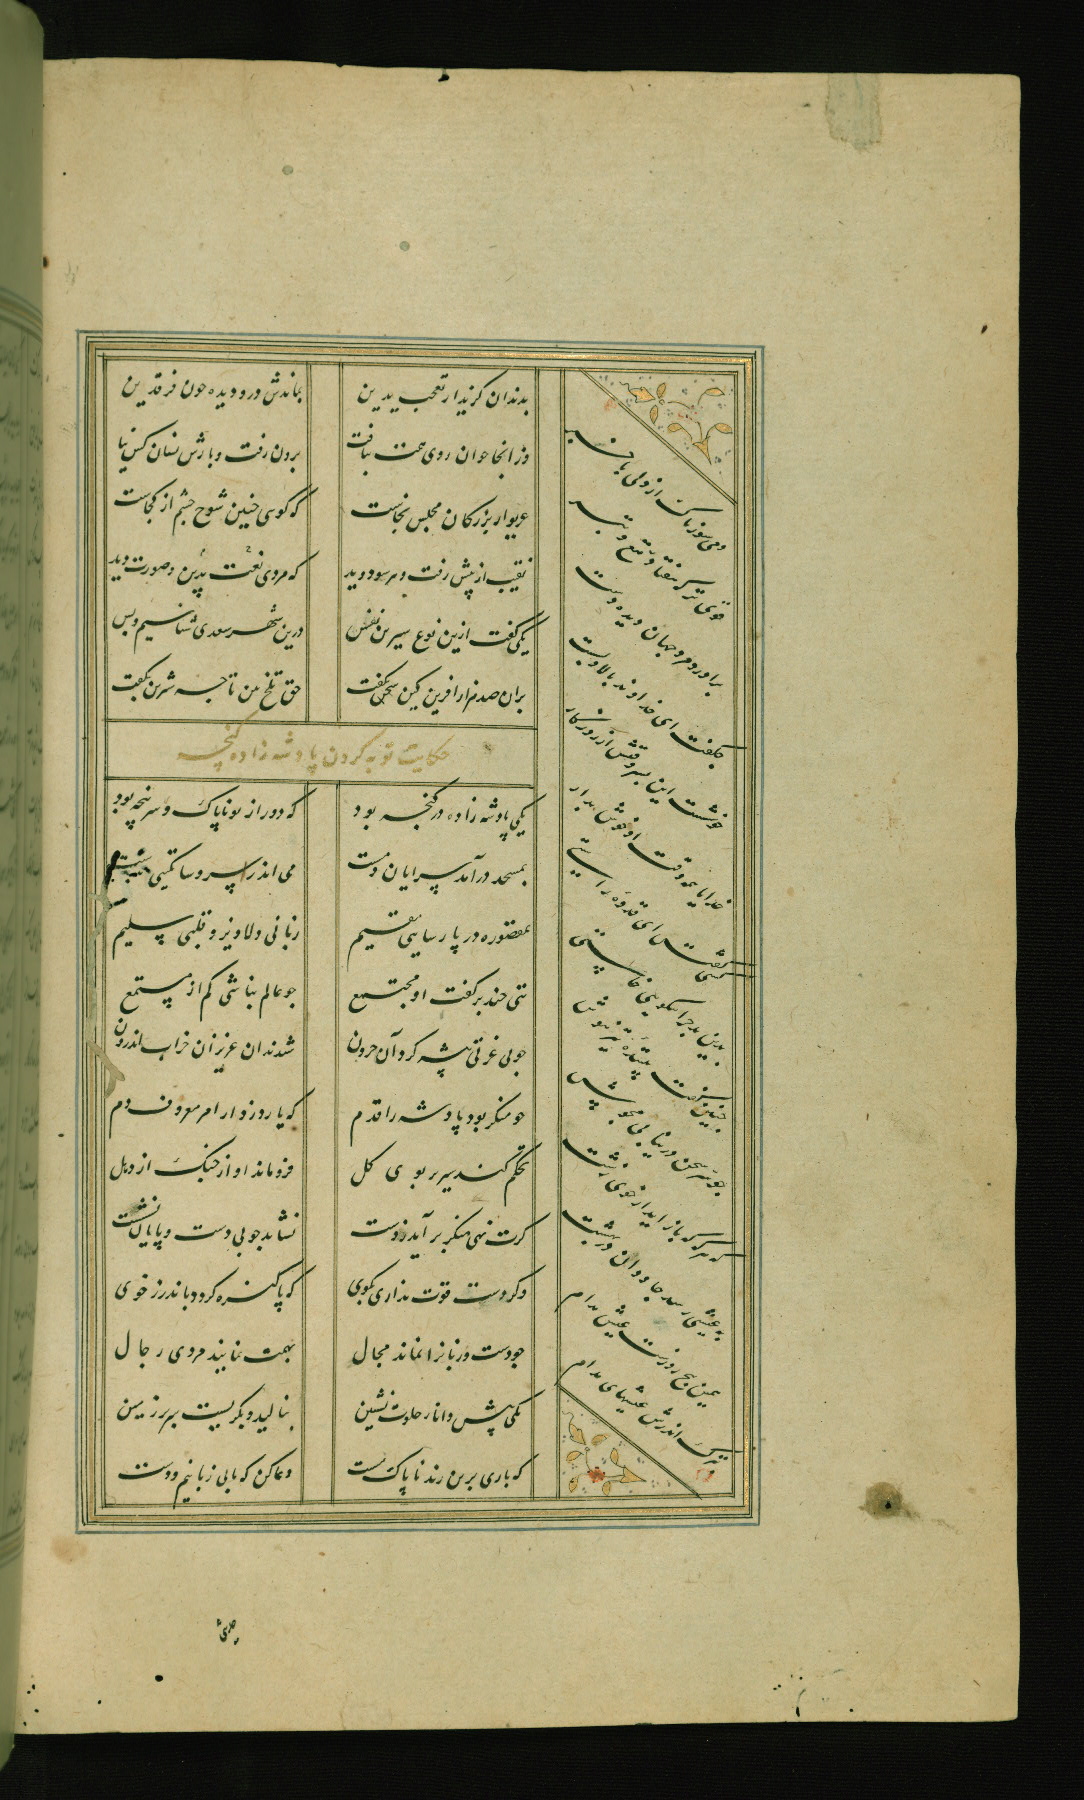 بدندان گزیدار تعجب یدین
بماندش درو دیده چون فرقدین
وز انجا جوان روی همت بتافت
برون رفت و بازش نشان کس نیافت
غریو از بزرگان مجلس بخاست
که گویی چنین شوخ چشم از کجاست
نقیب از پیش رفت و هر سو دوید
که مردی بدین نعت و صورت که دید
یکی گفت ازین نوع شیرین نفس
درین شهر سعدی شناسیم و بس
بران صد هزار افرین کین سخن بگفت
حق تلخ بین تا چه شیرین بگفت
حکایت توبه کردن پادشه زاده گنجه
یکی پادشه زاده در گنجه بود
که دور از تو ناپاک و سرپنجه بود
بمسجد درآمد سرایان و مست
می اندر سر و ساتکینی بدست
بمقصوره در پارسایی مقیم
زبانی دلاویز و قلبی سلیم
تنی چند بر گفت او مجتمع
چو عالم نباشی کم از مستمع
چو بی عزتی پیشه کرد آن حرون
شدند ان عزیزان خراب اندرون
چو منکر بود پادشه را قدم
که یارد زد از امر معروف دم
تحکم کند سیر بر بوی گل
فروماند اواز چنگ از دهل
گرت نهی منکر برآید ز دست
نشاید چو بی دست و پایان نشست
وگر دست قوت نداری بگوی
که پاکیزه گردد باندرز خوی
چو دست و زبانرا نماند مجال
بهمت نمایند مردی رجال
یکی پیش دانای خلوت نشین
بنالید و بگریست سر بر زمین
که باری برین رند ناپاک مست
دعا کن که ما بی زبانیم و دست
دمی سوزناک از دلی با خبر
قوی تر که هفتاد تیغ و تبر
براورد مرد جهان دیده دست
بگفت ای خداوند بالا و پست
خوشست این پسر وقتش از روزگار
خدایا همه وقت او خوش بدار
کسی گفتش ای قدوه راستی
بدین بد چرا نیکویی خواستی
چنین گفت بیننده تیز هوش
چو سر سخن درنیابی مجوش
که هر گه که باز اید از خوی زشت
به عیشی رسد جاودان در بهشت
همین پنج روزست عیش مدام
بترک اندرش عیشهای مدام